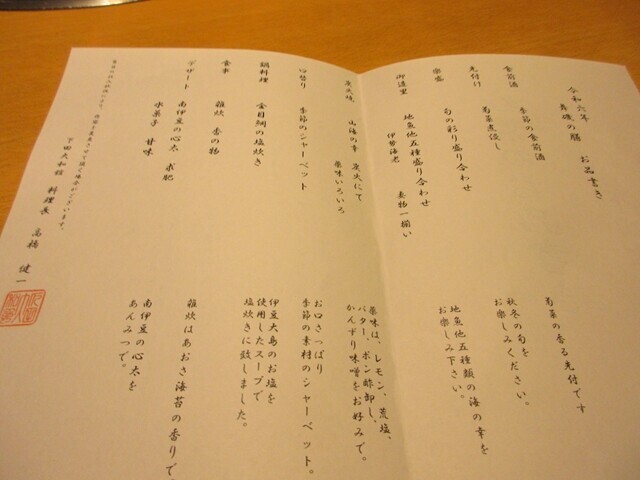 令和六年
舞磯の膳 お品書き
食前酒 季節の食前酒
先付け 菊菜煮浸し
楽盛 旬の彩り盛り合わせ
御造里 地魚他五種盛り合わせ 妻物一揃い
伊勢海老
炭火焼 山海の幸 炭火にて
薬味いろいろ
口替り 季節のシャーベット
鍋料理 金目鯛の塩炊き
食事 雑炊 香の物
デザート 南伊豆の心太 求肥
水菓子 甘味
下田大和館 料理長 高橋 健一
菊菜の香る先付です
秋冬の旬を
お楽しみください。
地魚他五種類の海の幸を
お楽しみ下さい。
薬味は、レモン、荒塩、
バター、ポン酢卸し、
かんずり味噌をお好みで。
お口さっぱり
季節の素材のシャーベット。
伊豆大島のお塩を
使用したスープで
塩炊きに致しました。
雑炊はあおさ海苔の香りで
南伊豆の心太を
あんみつで。